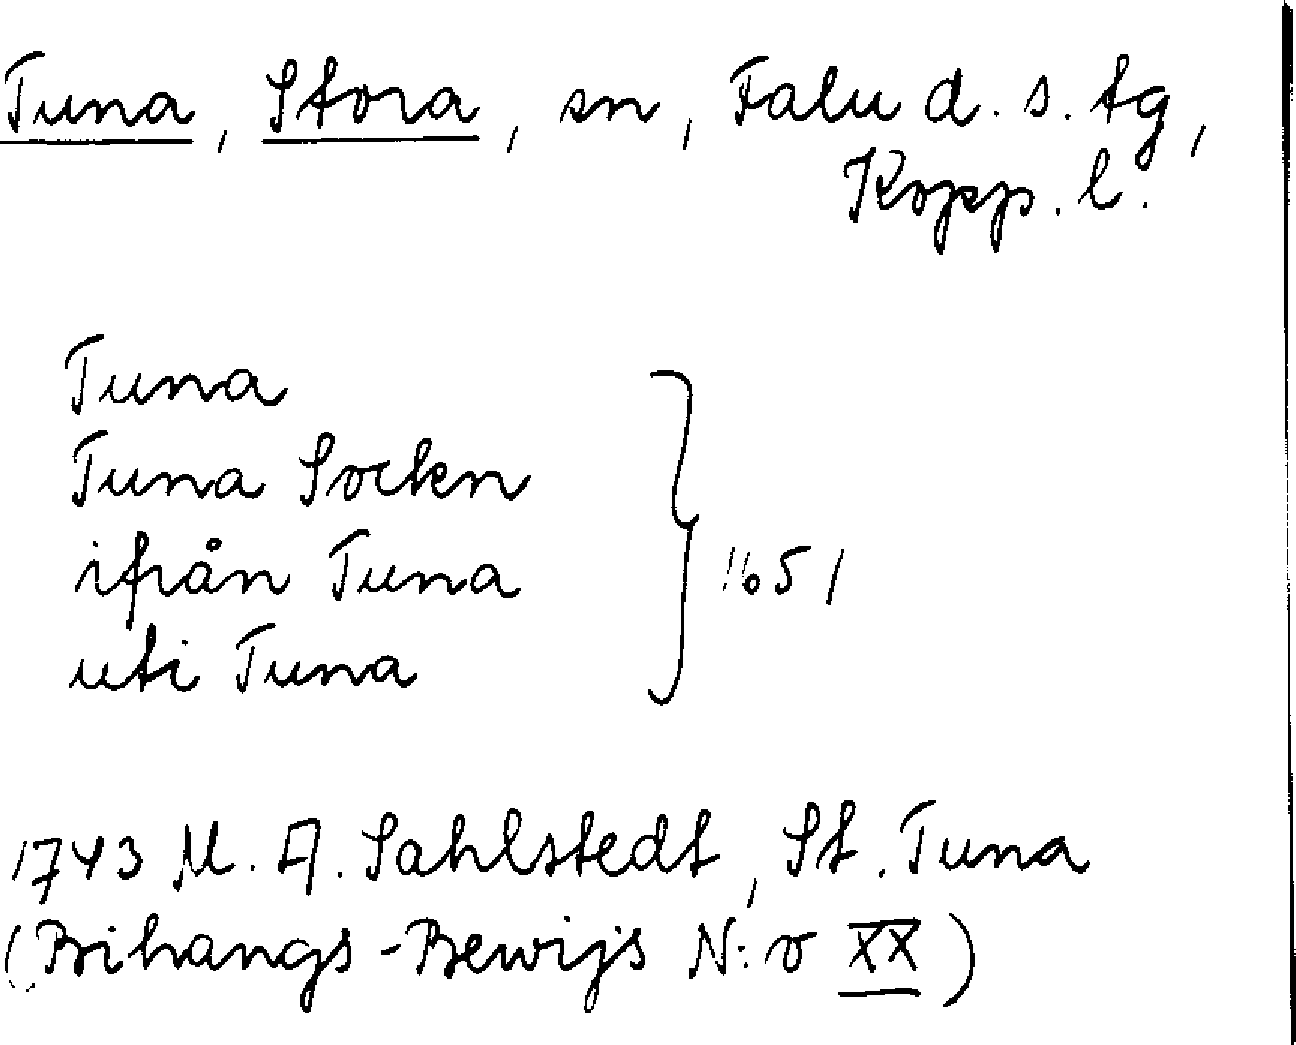 Tuna, Stora, sn, Falu d. s. tg,
Kopp. l.
Tuna
Tuna Sockn
ifrån Tuna
uti Tuna
1651
1743 M. A. Sahlstedt, St. Tuna
(Bihangs-Bewijs N:o XX)